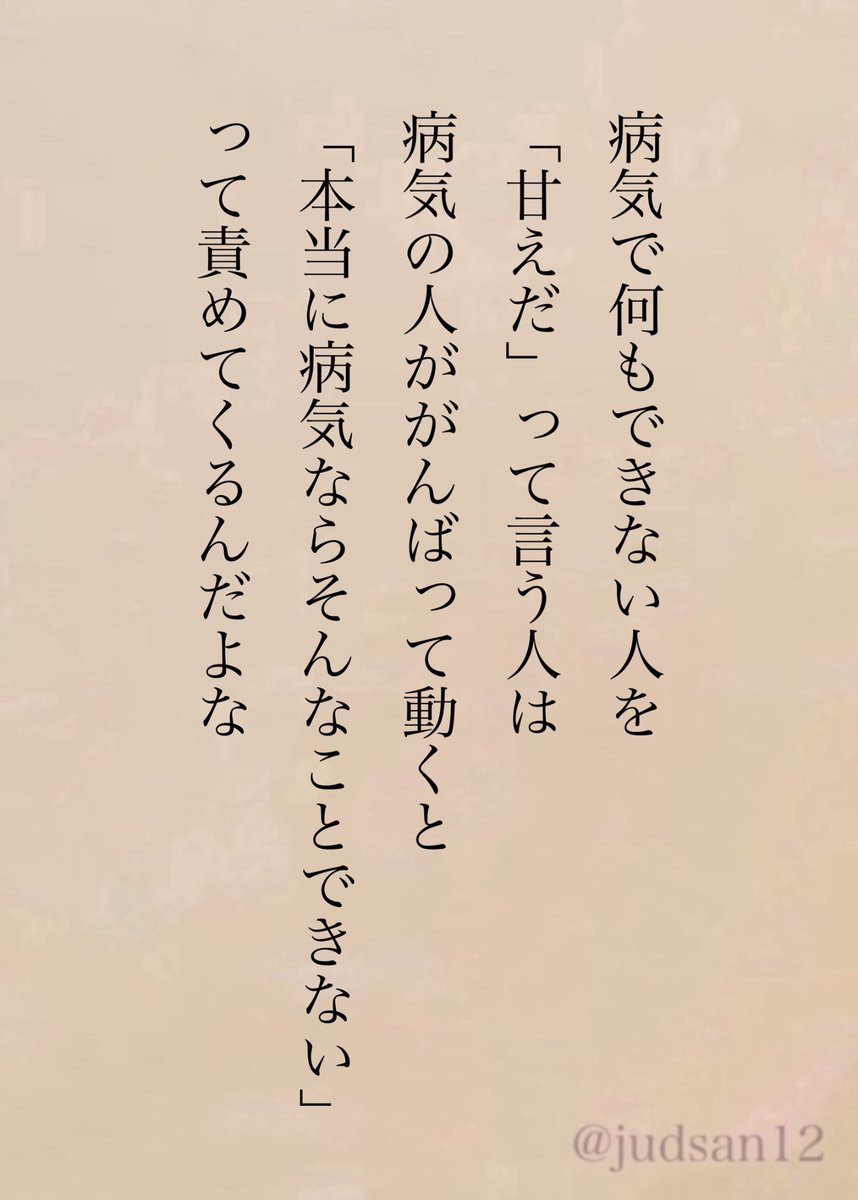 病気で何もできない人を
「甘えだ」って言う人は
病気の人ががんばって動くと
「本当に病気ならそんなことできない」
って責めてくるんだよな
@judsan12